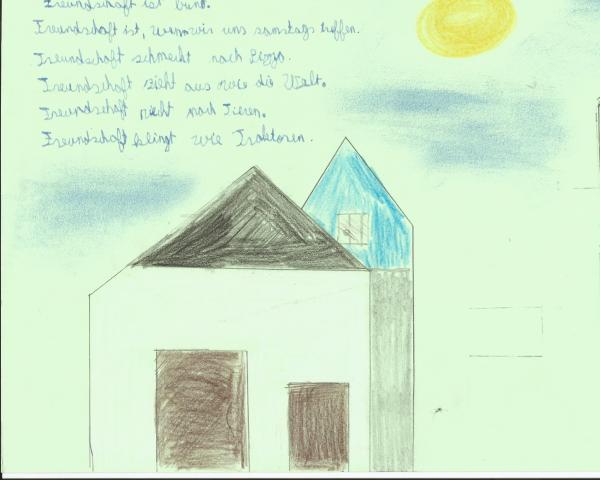 Freundschaft ist bunt.
Freundschaft ist, wenn wir uns samstags treffen.
Freundschaft schmeckt nach Pizza.
Freundschaft sieht aus wie die Welt.
Freundschaft riecht nach Tieren.
Freundschaft klingt wie Traktoren.